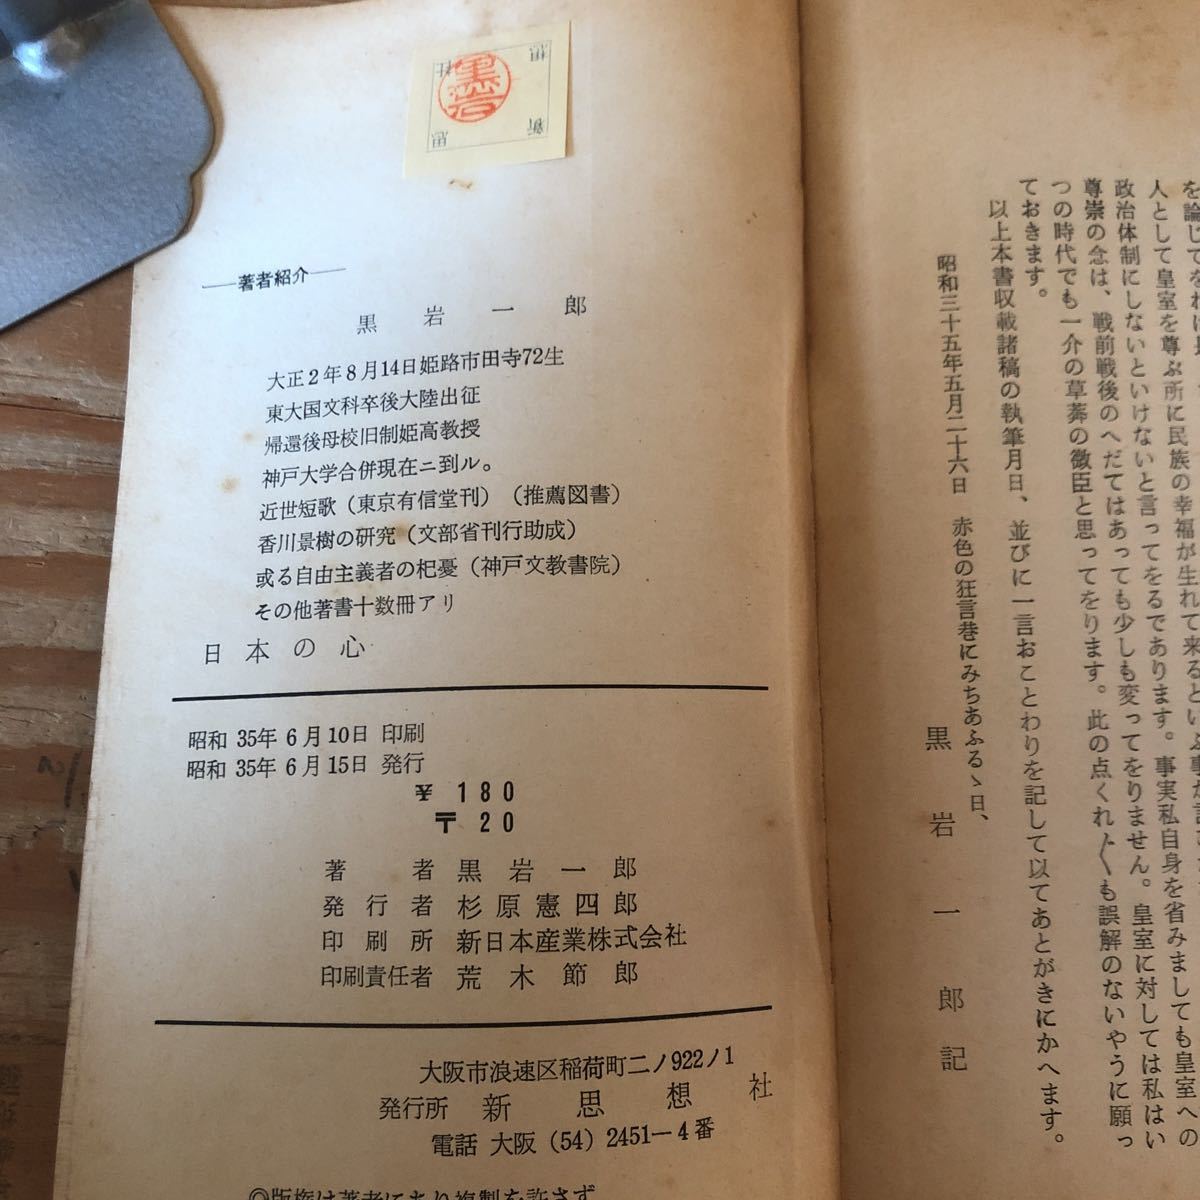 を論じてをれば
人として皇室を尊ぶ所に民族の幸福が生れて来るといふ事が
政治体制にしないといけないと言ってをるであります。事実私自身を省みましても皇室への
尊崇の念は、戦前戦後のへだてはあっても少しも変ってをりません。皇室に対しては私はい
つの時代でも一介の草莽の微臣と思ってをります。此の点くれ〴〵も誤解のないやうに願っ
ておきます。
以上本書収載諸稿の執筆月日、並びに一言おことわりを記して以てあとがきにかへます。
昭和三十五年五月二十六日 赤色の狂言巷にみちあふるゝ日、
黒岩一郎記
新思想社
黒岩
――著者紹介――
黒岩一郎
大正2年8月14日姫路市田寺72生
東大国文科卒後大陸出征
帰還後母校旧制姫高教授
神戸大学合併現在ニ到ル。
近世短歌(東京有信堂刊)(推薦図書)
香川景樹の研究(文部省刊行助成)
或る自由主義者の杞憂(神戸文教書院)
その他著書十数冊アリ
日本の心
昭和 35年 6月10日 印刷
昭和 35年 6月15日 発行
¥ 180
〒 20
著者 黒岩一郎
発行者 杉原憲四郎
印刷所 新日本産業株式会社
印刷責任者 荒木節郎
大阪市浪速区稲荷町二ノ922ノ1
発行所 新思想社
電話 大阪 (54) 2451―4番
◎版権は著者にあり複製を許さず